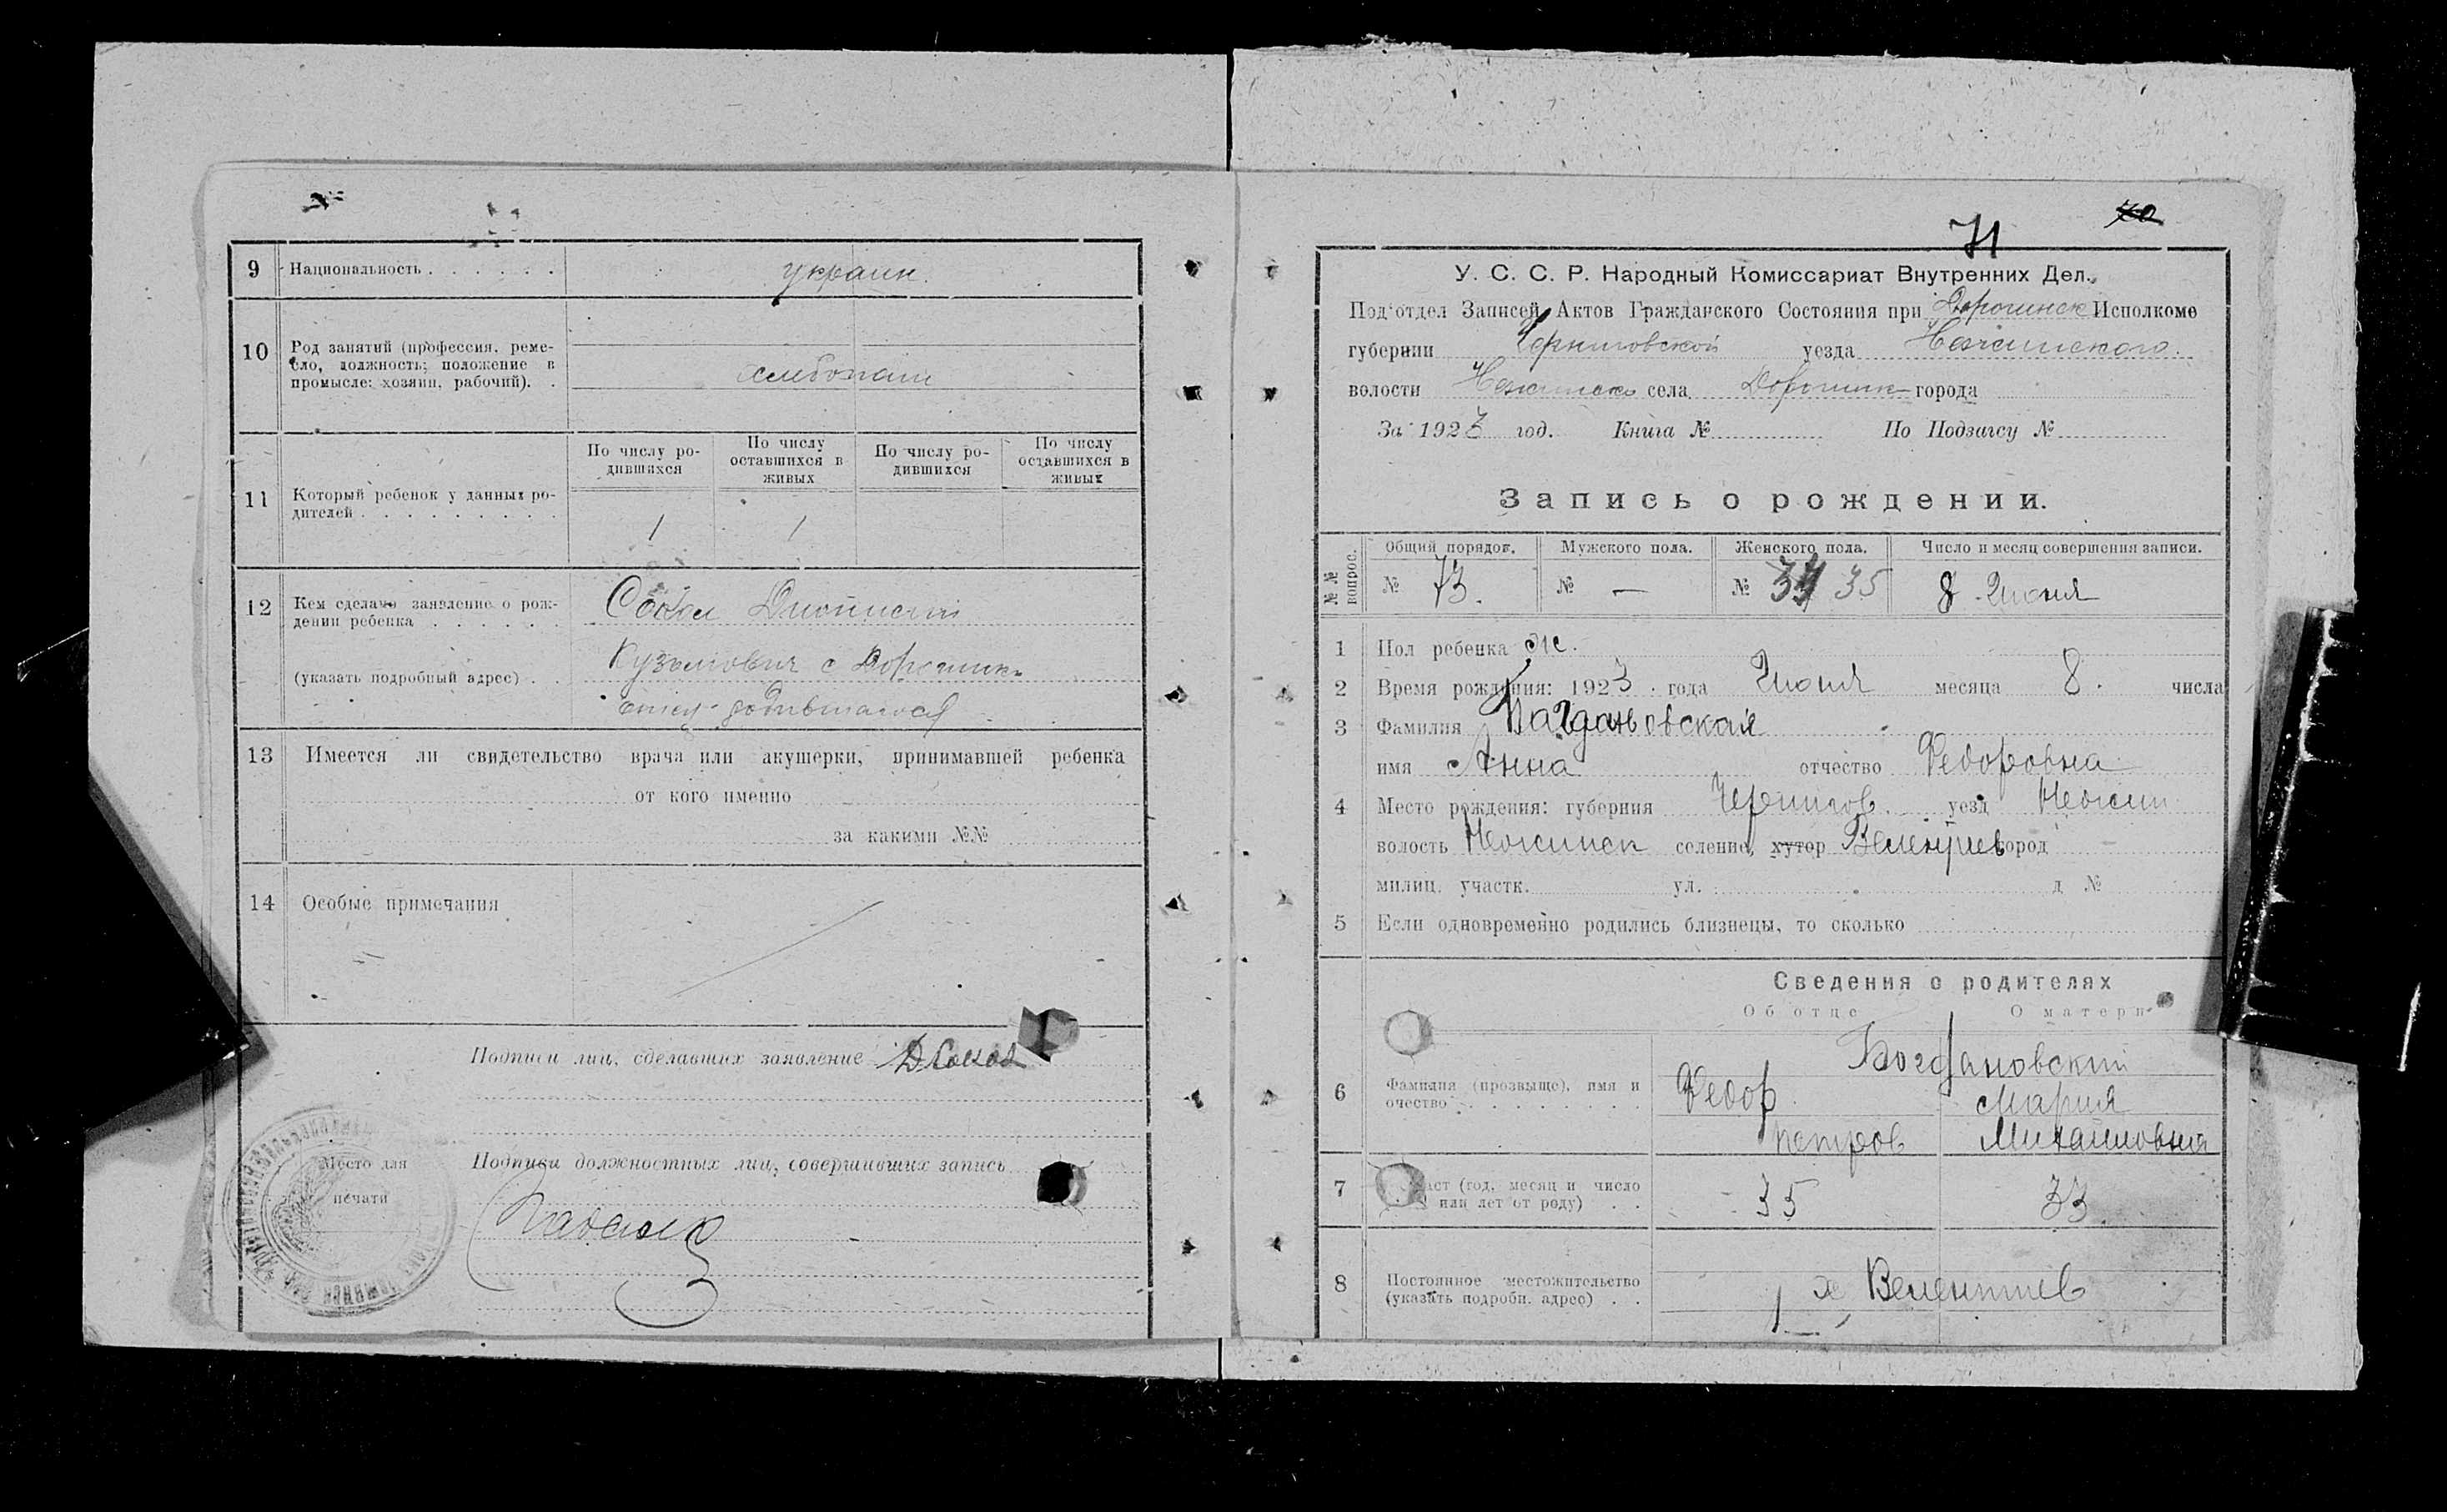 9 Национальность . . . . . . украин.
10 Род занятий (профессия, реме-
сло, должность; положение в
промысле: хозяин, рабочий). .
хлебопаш
По числу ро-
дившихся
По числу
оставшихся в
живых
По числу ро-
дившихся
По числу
оставшихся в
живых
11 Который ребенок у данных ро-
дителей . . . . . . . . . 1 1
12 Кем сделано заявление о рож-
дении ребенка . . . . . .
(указать подробный адрес) . .
Кузьмович с
отец родившагося
13 Имеется ли свидетельство врача или акушерки, принимавшей ребенка
от кого именно
за какими №№
14 Особые примечания
Подписи лиц, сделавших заявление
Место для
печати
Подписи должностных лиц, совершивших запись
70
71
У. С. С. Р. Народный Комиссариат Внутренних Дел.
Под'отдел Записей Актов Гражданского Состояния при Дорогинск Исполкоме
губернии Черниговской уезда Нежинского
волости Нежинск села Дорогинк города
За 1923 год. Книга № По Подзагсу №
Запись о рождении.
№№ вопрос.
Общий порядок. Мужского пола. Женского пола. Число и месяц совершения записи.
№ 73. № — № 35 8 Июня
1 Пол ребенка ж.
2 Время рождения: 1923 года Июня месяца 8. числа
3 Фамилия Багдановская
имя Анна отчество Федоровна
4 Место рождения: губерния Чернигов. уезд Нежин
волость Нежинск селение, хутор город
милиц. участк. ул. д №
5 Если одновременно родились близнецы, то сколько
Сведения о родителях
Об отце О матери
Богдановский
6 Фамилия (прозвище), имя и
очество . . . . . . . .
Федор Мария
петров Михайловна
7 (год, месяц и число
или лет от роду) . . 35 33
8 Постоянное местожительство
(указать подробн. адрес) . .
х